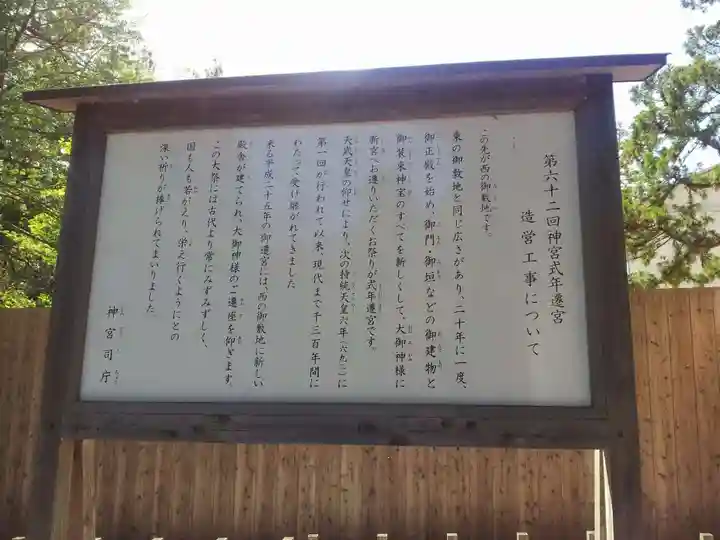 第六十二回神宮式年遷宮
造営工事について
この先が西の御敷地です。
東の御敷地と同じ広さがあり、二十年に一度、
御正殿を始め、御門・御垣などの御建物と
御装束神宝のすべてを新しくして、大御神様に
新宮へお遷りいただくお祭りが式年遷宮です。
天武天皇の仰せにより、次の持統天皇六年(六九二)に
第一回が行われて以来、現代まで千三百年間に
わたって受け継がれてきました
来る平成二十五年の御遷宮には、西の御敷地に新しい
殿舎が建てられ、大御神様のご遷座を仰ぎます。
この大祭には古代より常にみずみずしく、
国も人も若がえり、栄え行くようにとの
深い祈りが捧げられてまいりました。
神宮司庁